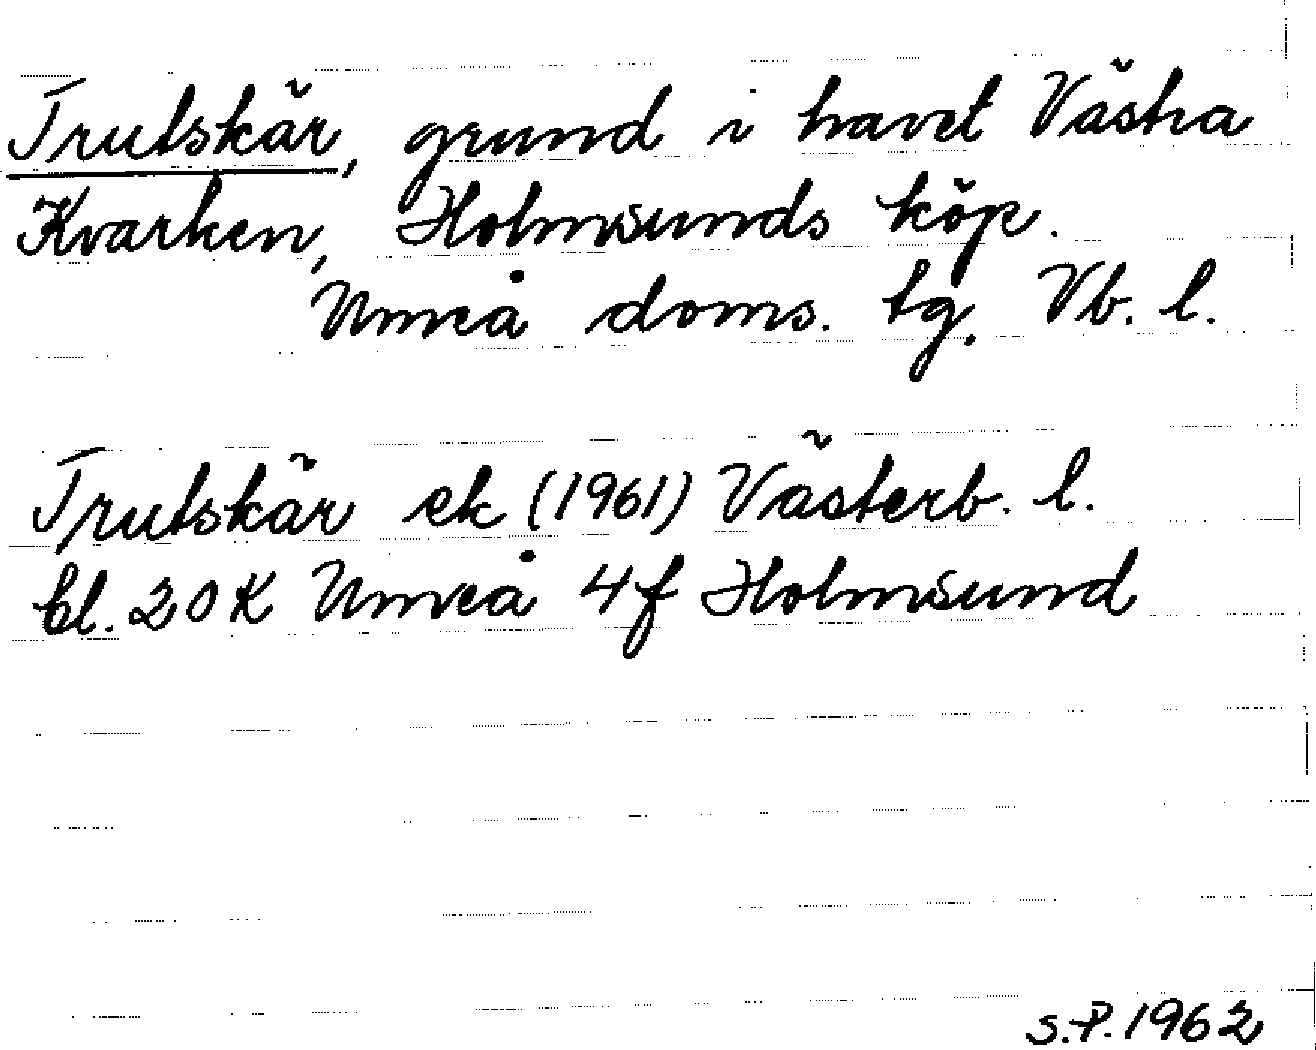 Trutskär, grund i havet Västra
Kvarken, Holmsunds köp.
Umeå doms. tg. Vb. l.
Trutskär ek (1961) Västerb. l.
bl. 20K Umeå 4f Holmsund
S.P. 1962